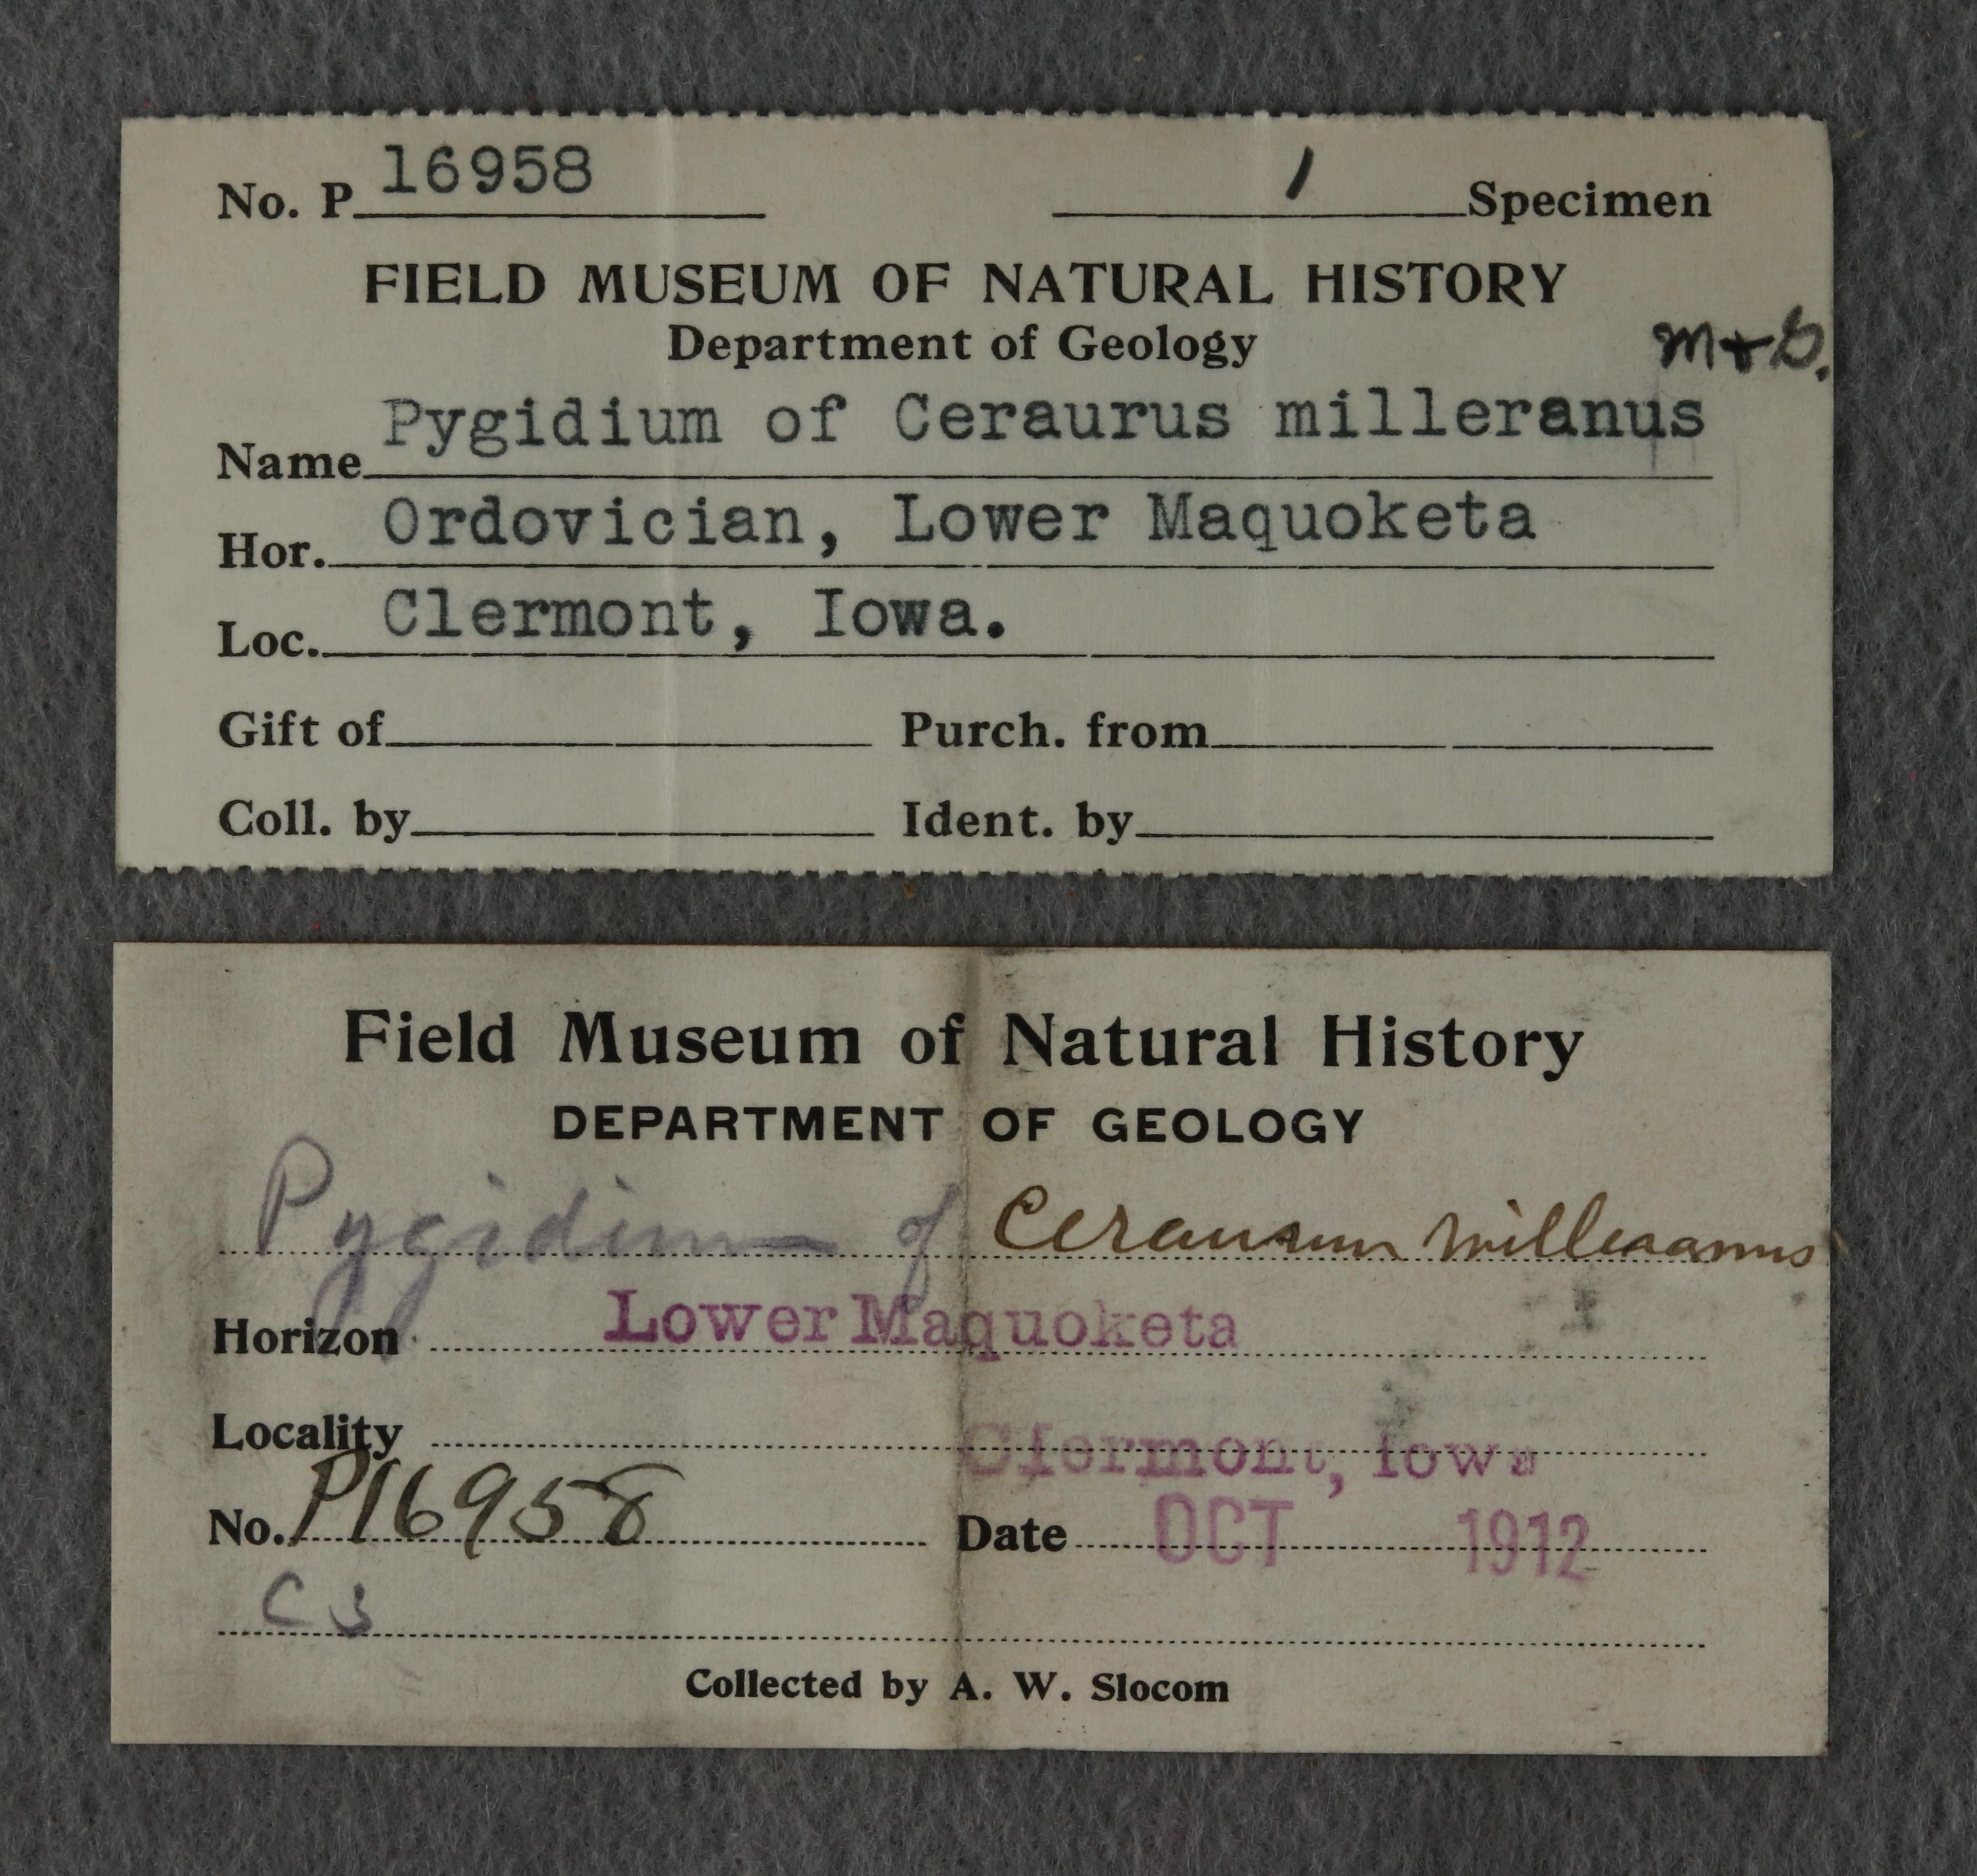 No. P 16958 1 Specimen
FIELD MUSEUM OF NATURAL HISTORY
Department of Geology
m+G.
Name Pygidium of Ceraurus milleranus
Hor. Ordovician, Lower Maquoketa
Loc. Clermont, Iowa.
Gift of Purch. from
Coll. by Ident. by
Field Museum of Natural History
DEPARTMENT OF GEOLOGY
Pygidium of Ceraurus milleranus
Horizon Lower Maquoketa
Locality Clermont, Iowa
No. P16958 Date OCT 1912
C3
Collected by A. W. Slocom